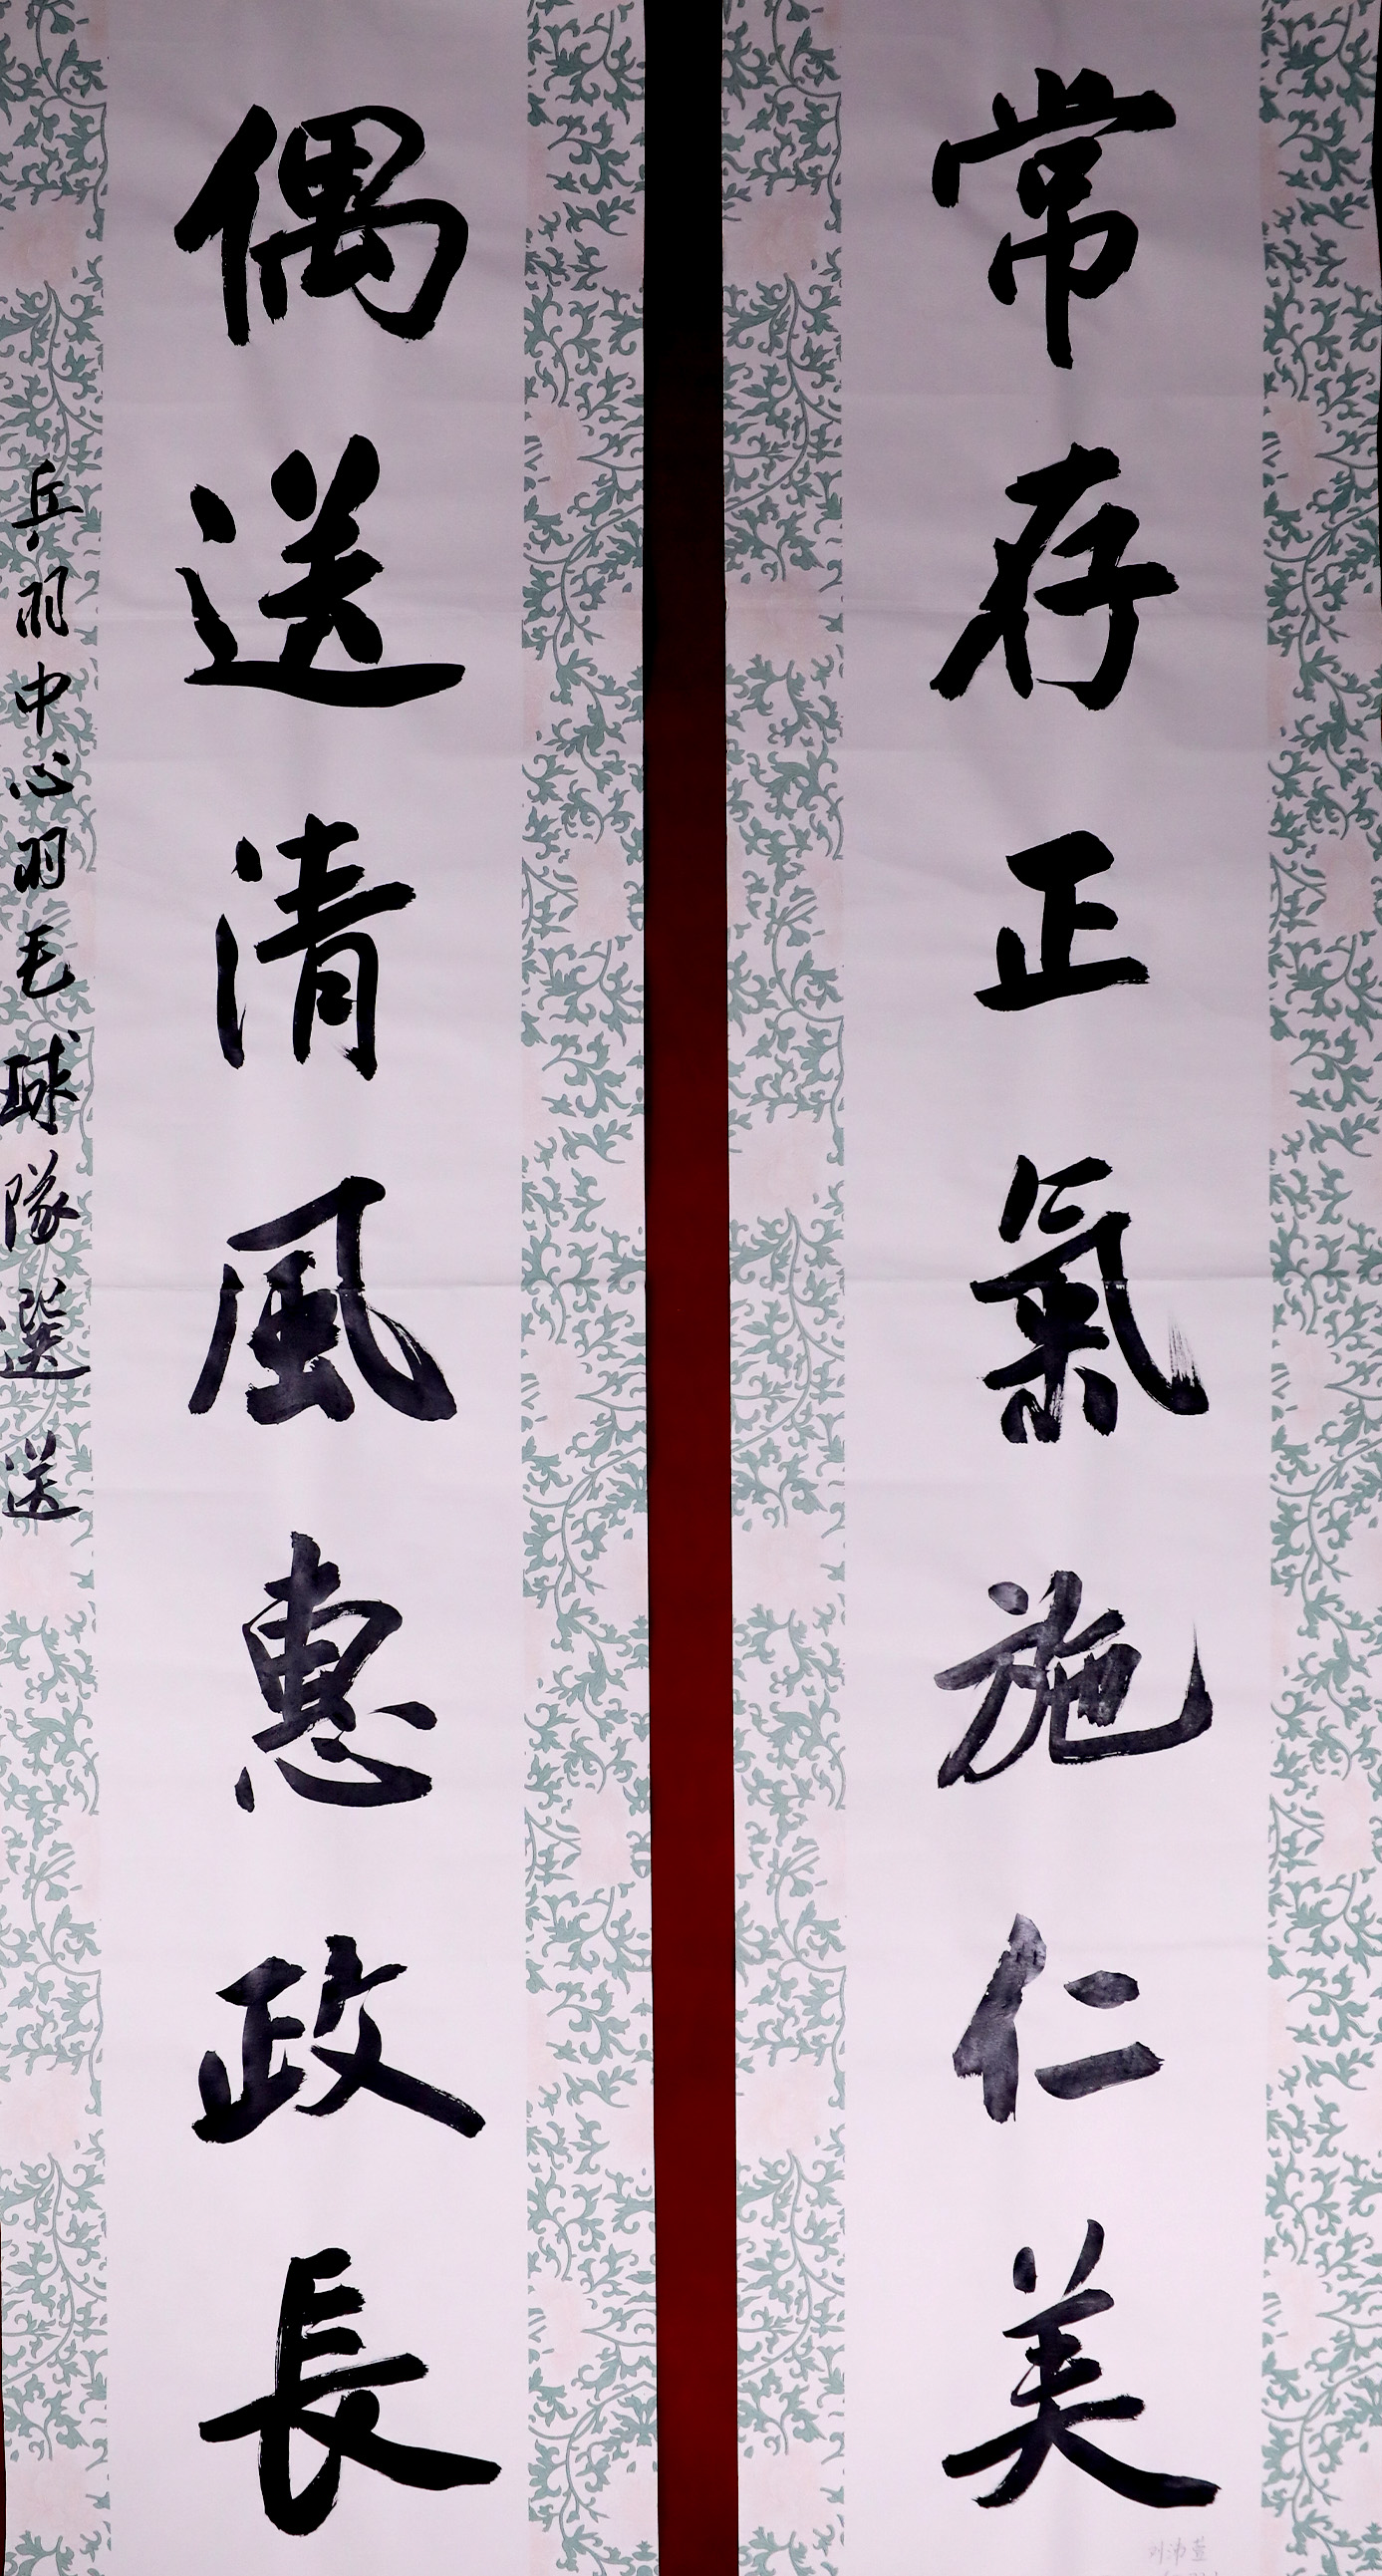 常存正氣施仁美
偶送清風惠政長
乒羽中心羽毛球隊選送